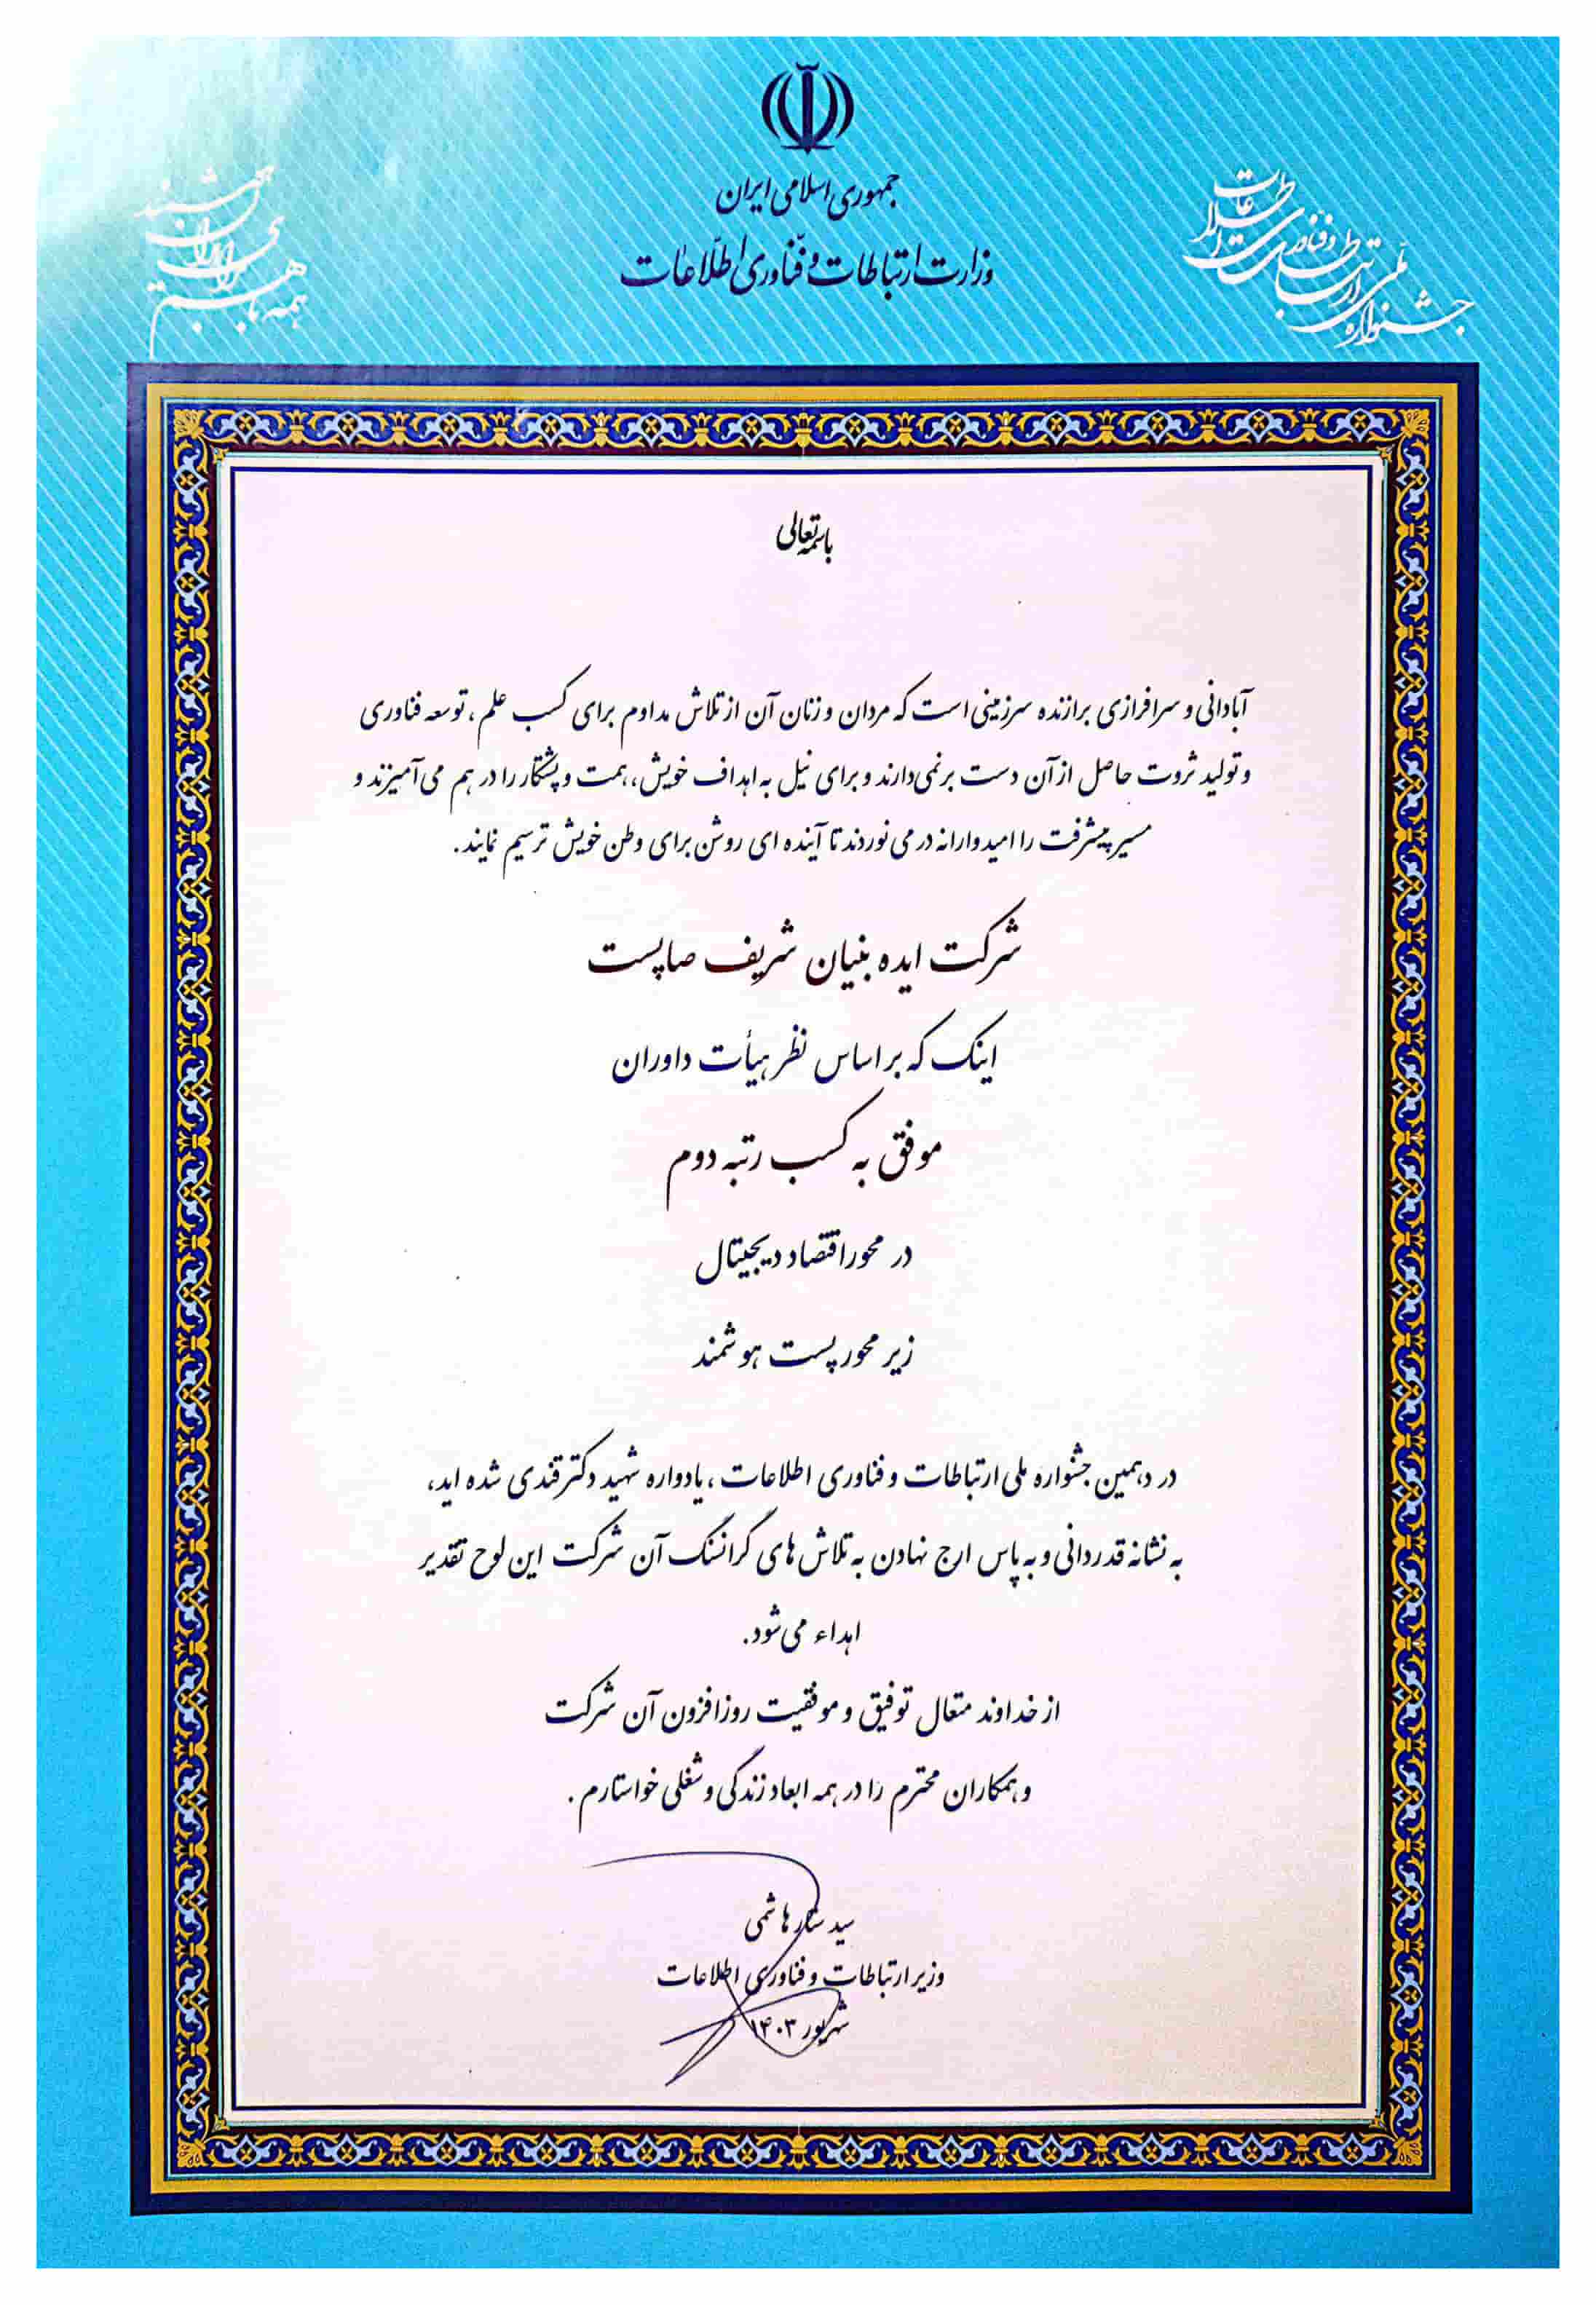 جمهوری اسلامی ایران
وزارت ارتباطات و فنّاوری اطلّاعات
جشنواره ملّی ارتباطات و فناوری اطلاعات
همه با هم برای ایران هوشمند
باسمه تعالی
آبادانی و سرافرازی برازنده سرزمینی است که مردان و زنان آن از تلاش مداوم برای کسب علم، توسعه فناوری
و تولید ثروت حاصل از آن دست برنمی‌دارند و برای نیل به اهداف خویش، همت و پشتکار را در هم می‌آمیزند و
مسیر پیشرفت را امیدوارانه درمی‌نوردند تا آینده ای روشن برای وطن خویش ترسیم نمایند.
شرکت ایده بنیان شریف صاپست
اینک که بر اساس نظر هیأت داوران
موفق به کسب رتبه دوم
در محور اقتصاد دیجیتال
زیر محور پست هوشمند
در دهمین جشنواره ملی ارتباطات و فناوری اطلاعات، یادواره شهید دکتر قندی شده اید،
به نشانه قدردانی و به پاس ارج نهادن به تلاش های گرانسنگ آن شرکت این لوح تقدیر
اهداء می‌شود.
از خداوند متعال توفیق و موفقیت روزافزون آن شرکت
و همکاران محترم را در همه ابعاد زندگی و شغلی خواستارم.
سید ستار هاشمی
وزیر ارتباطات و فناوری اطلاعات
شهریور ۱۴۰۳